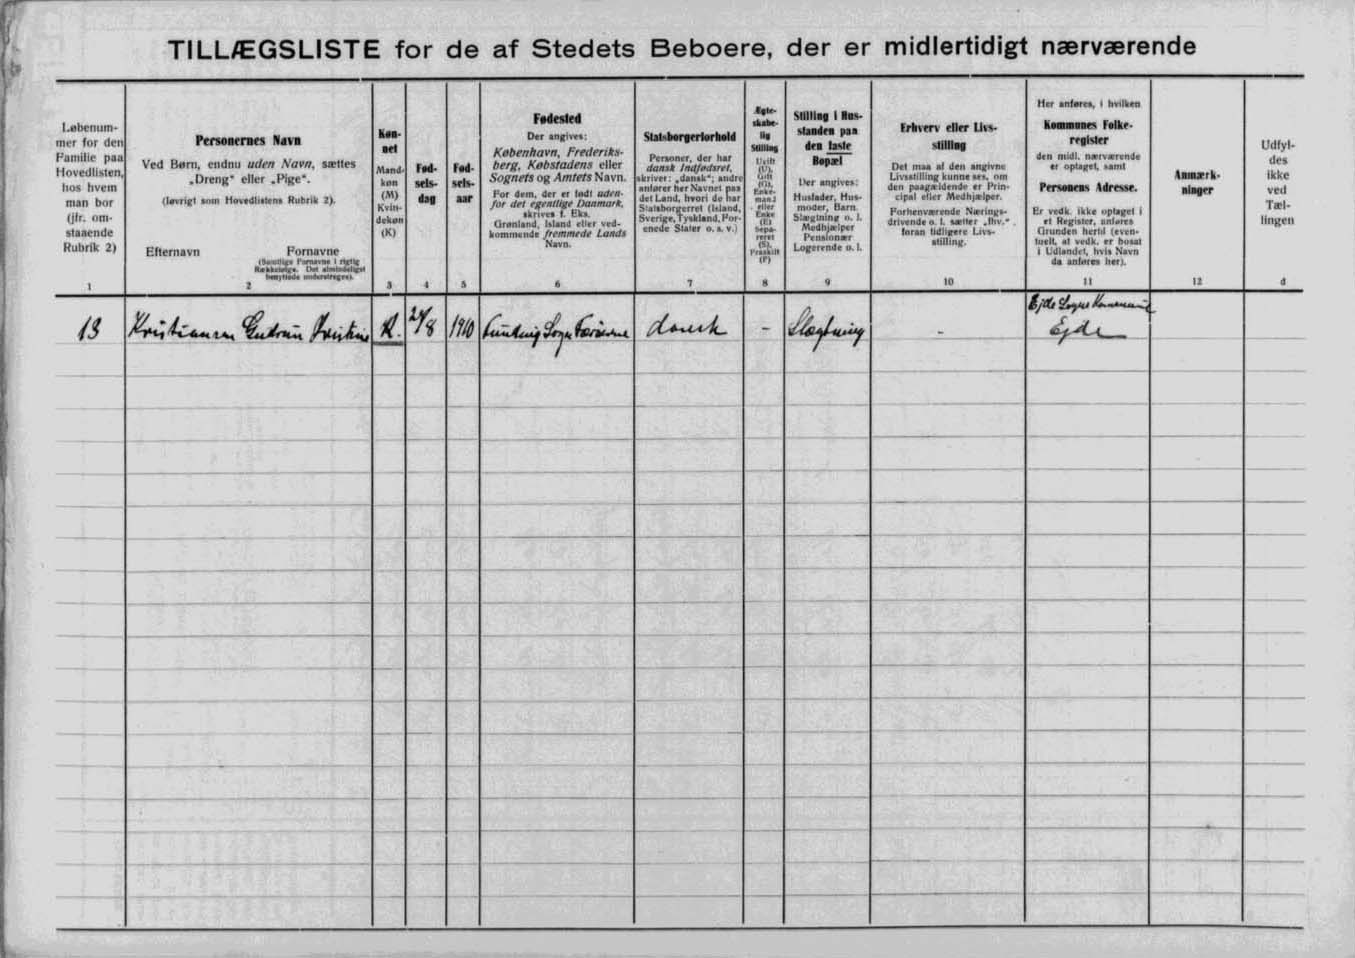 TILLÆGSLISTE for de af Stedets Beboere, der er midlertidigt nærværende
Løbenum-
mer for den
Familie paa
Hovedlisten,
hos hvem
man bor
(jfr. om-
staaende
Rubrik 2)
1
Personernes Navn
Ved Børn, endnu uden Navn, sættes
„Dreng“ eller „Pige“.
(Iøvrigt som Hovedlistens Rubrik 2).
Efternavn Fornavne
(Samtlige Fornavne i rigtig
Rækkefølge. Det almindeligst
benyttede understreges).
2
Køn-
net
Mand-
køn
(M)
Kvin-
dekøn
(K)
3
Fød-
sels-
dag
4
Fød-
sels-
aar
5
Fødested
Der angives:
København, Frederiks-
berg, Købstadens eller
Sognets og Amtets Navn.
For dem, der er født uden-
for det egentlige Danmark,
skrives f. Eks.
Grønland, Island eller ved-
kommende fremmede Lands
Navn.
6
Statsborgerforhold
Personer, der har
dansk Indfødsret,
skriver: „dansk“; andre
anfører her Navnet paa
det Land, hvori de har
Statsborgerret (Island,
Sverige, Tyskland, For-
enede Stater o. s. v.)
7
Ægte-
skabe-
lig
Stilling
Ugift
(U),
Gift
(G),
Enke-
mand
eller
Enke
(E)
Sepa-
reret
(S),
Fraskilt
(F)
8
Stilling i Hus-
standen paa
den faste
Bopæl
Der angives:
Husfader, Hus-
moder, Barn,
Slægtning o. l.
Medhjælper
Pensionær
Logerende o. l.
9
Erhverv eller Livs-
stilling
Det maa af den angivne
Livsstilling kunne ses, om
den paagældende er Prin-
cipal eller Medhjælper.
Forhenværende Nærings-
drivende o. l. sætter „fhv.“
foran tidligere Livs-
stilling.
10
Her anføres, i hvilken
Kommunes Folke-
register
den midl. nærværende
er optaget, samt
Personens Adresse.
Er vedk. ikke optaget i
et Register, anføres
Grunden hertil (even-
tuelt, at vedk. er bosat
i Udlandet, hvis Navn
da anføres her).
11
Anmærk-
ninger
12
Udfyl-
des
ikke
ved
Tæl-
lingen
d
Ejde Sogns Kommune
13 Kristiansen Gudrun Kristine K. 24/8 1910 Funding Sogn Færøerne dansk - Slægtning - Ejde